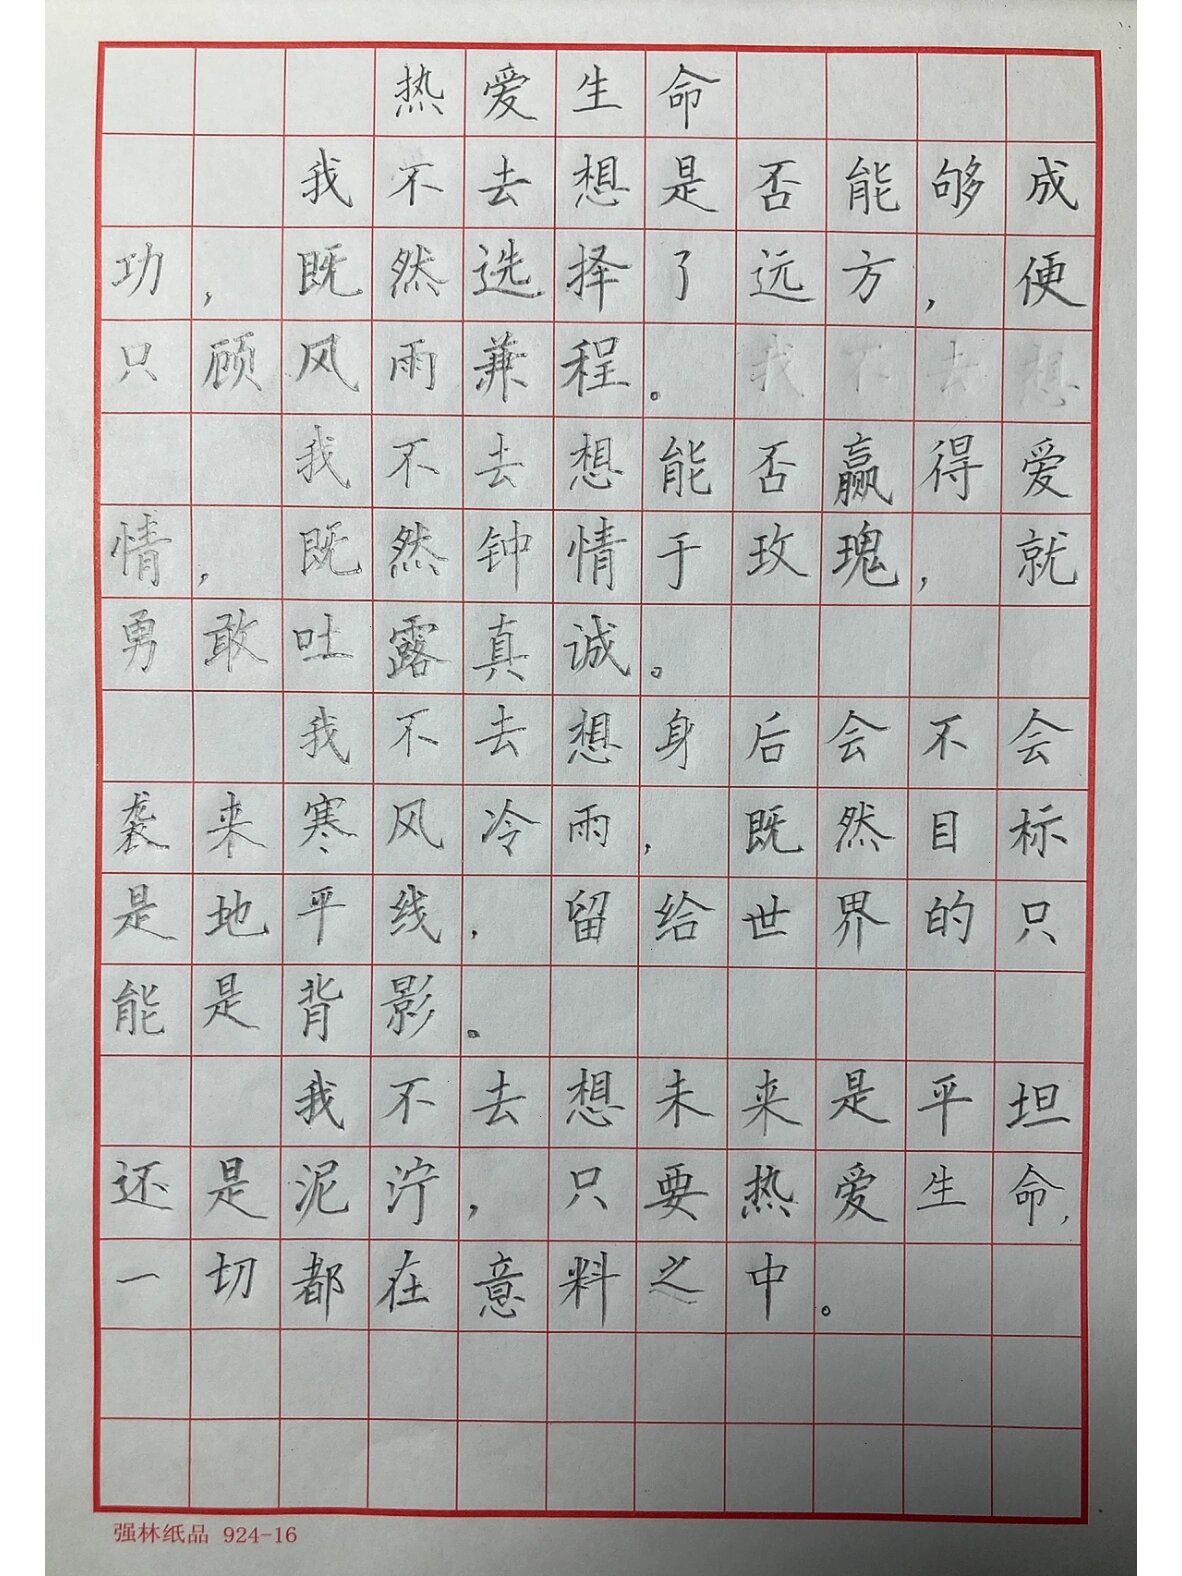 热爱生命
我不去想是否能够成
功，既然选择了远方，便
只顾风雨兼程。我不去想
我不去想能否赢得爱
情，既然钟情于玫瑰，就
勇敢吐露真诚。
我不去想身后会不会
袭来寒风冷雨，既然目标
是地平线，留给世界的只
能是背影。
我不去想未来是平坦
还是泥泞，只要热爱生命，
一切都在意料之中。
强林纸品 924-16